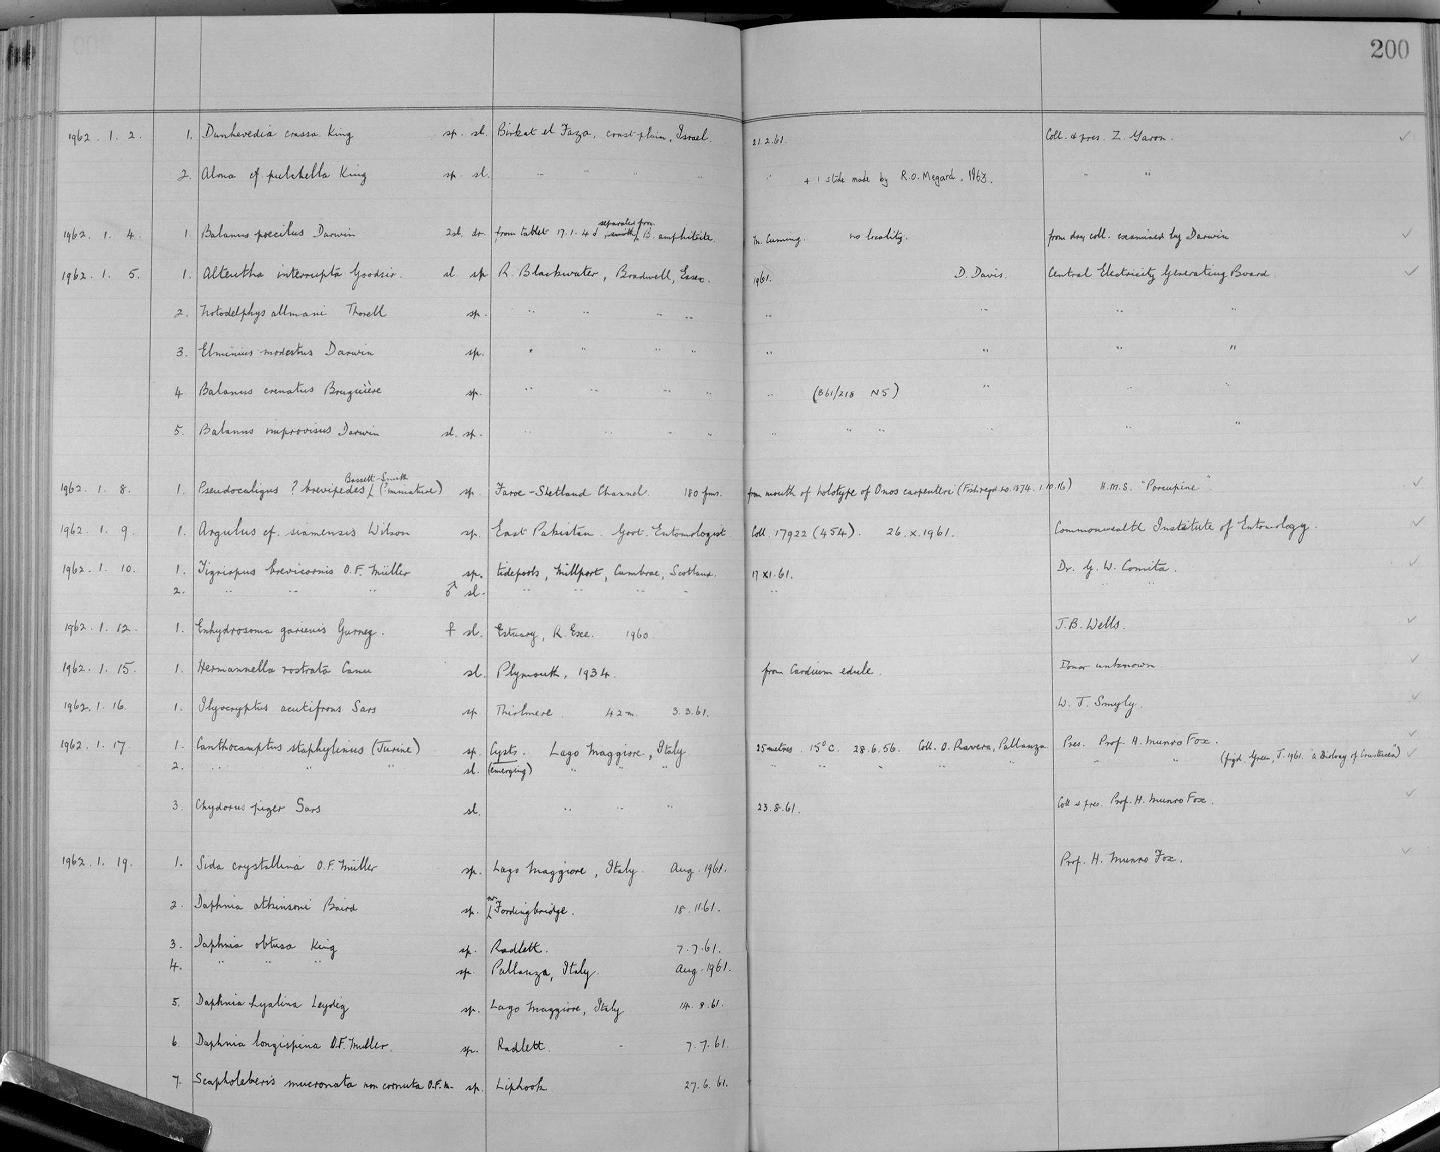 200
1962. 1. 2. 1. Dunhevedia crassa King sp. sl. Birkat el Faza, coast plain, Israel. 21.2.61. Coll. & pres. Z. Yaron.
2. Alona cf pulchella King sp. sl. " " " " " + 1 slide made by R.O. Megard, 1963. " "
1962. 1. 4. 1. Balanus poecilus Darwin 2sl. dr. from tablet 17.1.4d separates from B. amphitrite. M. Cuming. no locality. from dry coll. examined by Darwin
1962. 1. 5. 1. Alteutha interrupta Goodsir. sl sp R. Blackwater, Bradwell, Essex. 1961. D. Davis. Central Electricity Generating Board.
2. Notodelphys allmani Thorell sp. " " " " " " " "
3. Elminius modestus Darwin sp. " " " " " " " "
4 Balanus crenatus Bruguière sp. " " " " " (861/218 NS) " " "
5. Balanus improvisus Darwin sl. sp. " " " " " " " " " "
1962. 1. 8. 1. Pseudocaligus ? brevipedes Bassett-Smith (?immature) sp. Faroe-Shetland Channel. 180 fms. from mouth of holotype of Onos carpenteri (Fish regd. no. 1874.1.10.16) H.M.S. "Porcupine"
1962. 1. 9. 1. Argulus cf. siamensis Wilson sp. East Pakistan. Govt. Entomologist Coll. 17922 (454). 26.x.1961. Commonwealth Institute of Entomology.
1962. 1. 10. 1. Tigriopus brevicornis O.F. Müller sp. tidepools, Millport, Cumbrae, Scotland. 17 XI.61. Dr. G. W. Comita.
2. " " " ♂ sl. " " " " " " "
1962. 1. 12. 1. Enhydrosoma gariensis Gurney. ♀ sl. Estuary, R. Exe. 1960 J.B. Wells.
1962. 1. 15 1. Hermannella rostrata Canu sl. Plymouth, 1934. from Cardium edule. Donor unknown
1962. 1. 16. 1. Ilyocryptus acutifrons Sars sp Thirlmere. 42 m. 3.3.61. W. J. Smyly.
1962. 1. 17 1. Canthocamptus staphylinus (Jurine) sp. Cysts. Lago Maggiore, Italy 25 metres. 15°C. 28.6.56. Coll. O. Ravera, Pallanza Pres. Prof. H. Munro Fox.
2. " " " sl. (emerging) " " " " " " " " " " (figd. Green, J. 1961. "a Biology of Crustacea")
3. Chydorus piger Sars sl. " " " 23.8.61. Coll & pres. Prof. H. Munro Fox.
1962. 1. 19. 1. Sida crystallina O.F. Müller sp. Lago Maggiore, Italy. Aug. 1961. Prof. H. Munro Fox.
2. Daphnia atkinsoni Baird sp. nr Fordingbridge. 18.11.61.
3. Daphnia obtusa King sp. Radlett. 7.7.61.
4. " " " sp. Pallanza, Italy. Aug. 1961.
5. Daphnia hyalina Leydig sp. Lago Maggiore, Italy 14.8.61.
6 Daphnia longispina O.F. Müller. sp. Radlett. 7.7.61.
7. Scapholeberis mucronata non cornuta O.F.M. sp. Liphook 27.6.61.